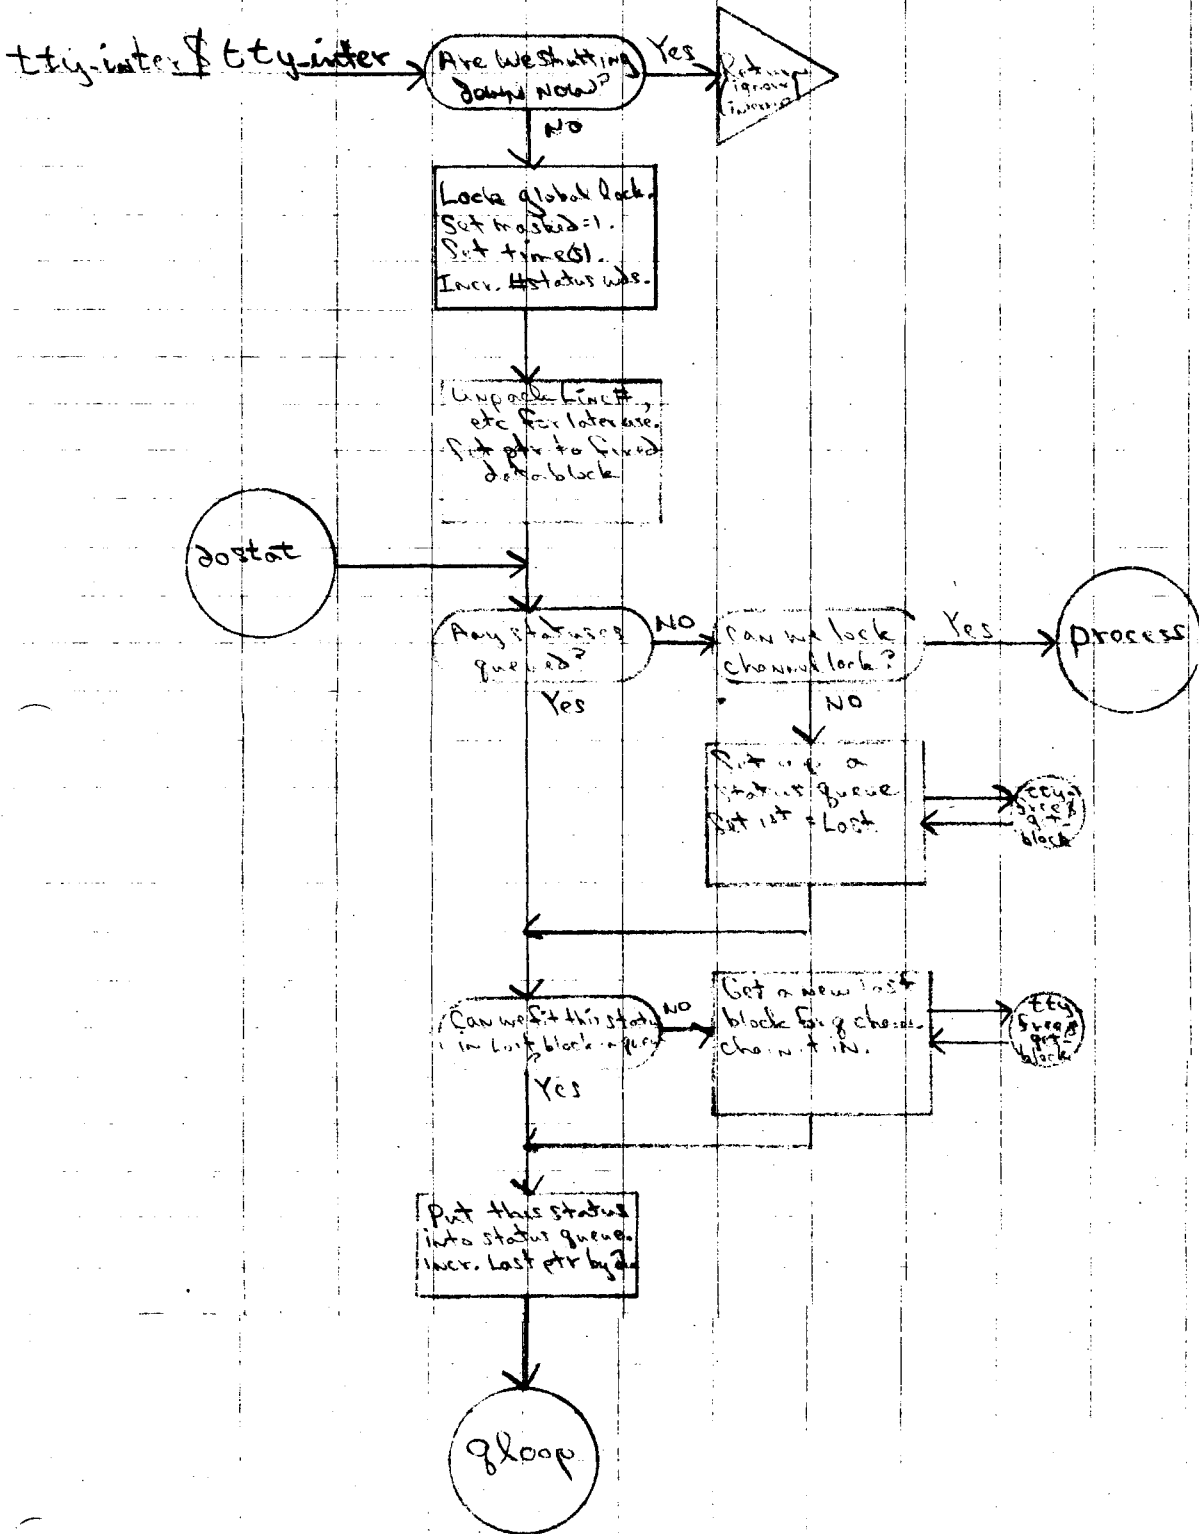 tty-inter$tty-inter
Are We Shutting
down now?
Yes
Return
ignore
NO
Lock global lock.
Set masked=1.
Set time(s).
Incr. #status wds.
Unpack Line#,
etc for later use.
Set ptr to fixed
data block
dostat
Any statuses
queued?
NO
Can we lock
channel lock?
Yes
process
Yes
NO
Set up a
status queue
Set 1st = Last.
tty-
free$
get-
block
Can we fit this status
in Last block in queue
?
NO
Get a new last
block for q chain.
chain it in.
tty-
free$
get-
block
Yes
Put this status
into status queue.
Incr. Last ptr by
qloop